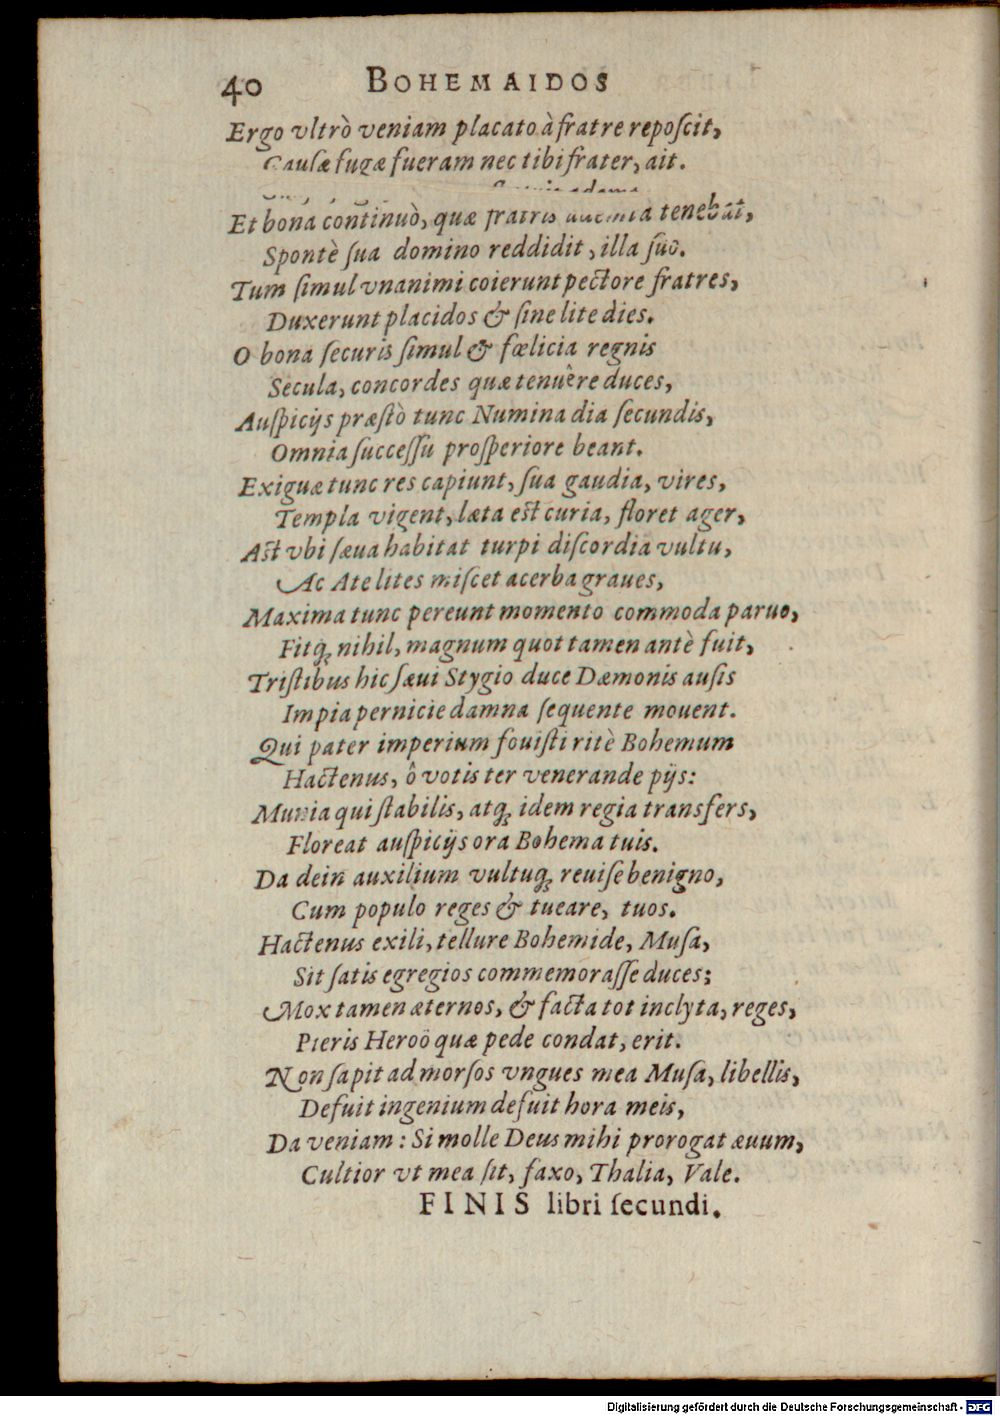 40 BOHEMAIDOS
Ergo vltrò veniam placato à fratre repoſcit,
Cauſæ fugæ fueram nec tibi frater, ait.
Et bona continuò, quæ fratris tenebat,
Spontè ſua domino reddidit, illa ſuo.
Tum ſimul vnanimi coierunt pectore fratres,
Duxerunt placidos & ſine lite dies.
O bona ſecuris ſimul & fœlicia regnis
Secula, concordes quæ tenuêre duces,
Auſpicijs præſtò tunc Numina dia ſecundis,
Omnia ſucceſſu proſperiore beant.
Exiguæ tunc res capiunt, ſua gaudia, vires,
Templa vigent, læta est curia, floret ager,
Ast vbi ſæua habitat turpi diſcordia vultu,
Ac Ate lites miſcet acerba graues,
Maxima tunc pereunt momento commoda paruo,
Fitq; nihil, magnum quot tamen antè fuit,
Triſtibus hic ſæui Stygio duce Dæmonis auſis
Impia pernicie damna ſequente mouent.
Qui pater imperium fouiſti ritè Bohemum
Hactenus, ô votis ter venerande pijs:
Munia qui ſtabilis, atq; idem regia transfers,
Floreat auſpicijs ora Bohema tuis.
Da dein auxilium vultuq; reuiſe benigno,
Cum populo reges & tueare, tuos.
Hactenus exili, tellure Bohemide, Muſa,
Sit ſatis egregios commemoraſſe duces;
Mox tamen æternos, & facta tot inclyta, reges,
Pieris Heroö quæ pede condat, erit.
Non ſapit ad morſos vngues mea Muſa, libellis,
Defuit ingenium defuit hora meis,
Da veniam: Si molle Deus mihi prorogat æuum,
Cultior vt mea ſit, faxo, Thalia, Vale.
FINIS libri ſecundi.
Digitalisierung gefördert durch die Deutsche Forschungsgemeinschaft - DFG